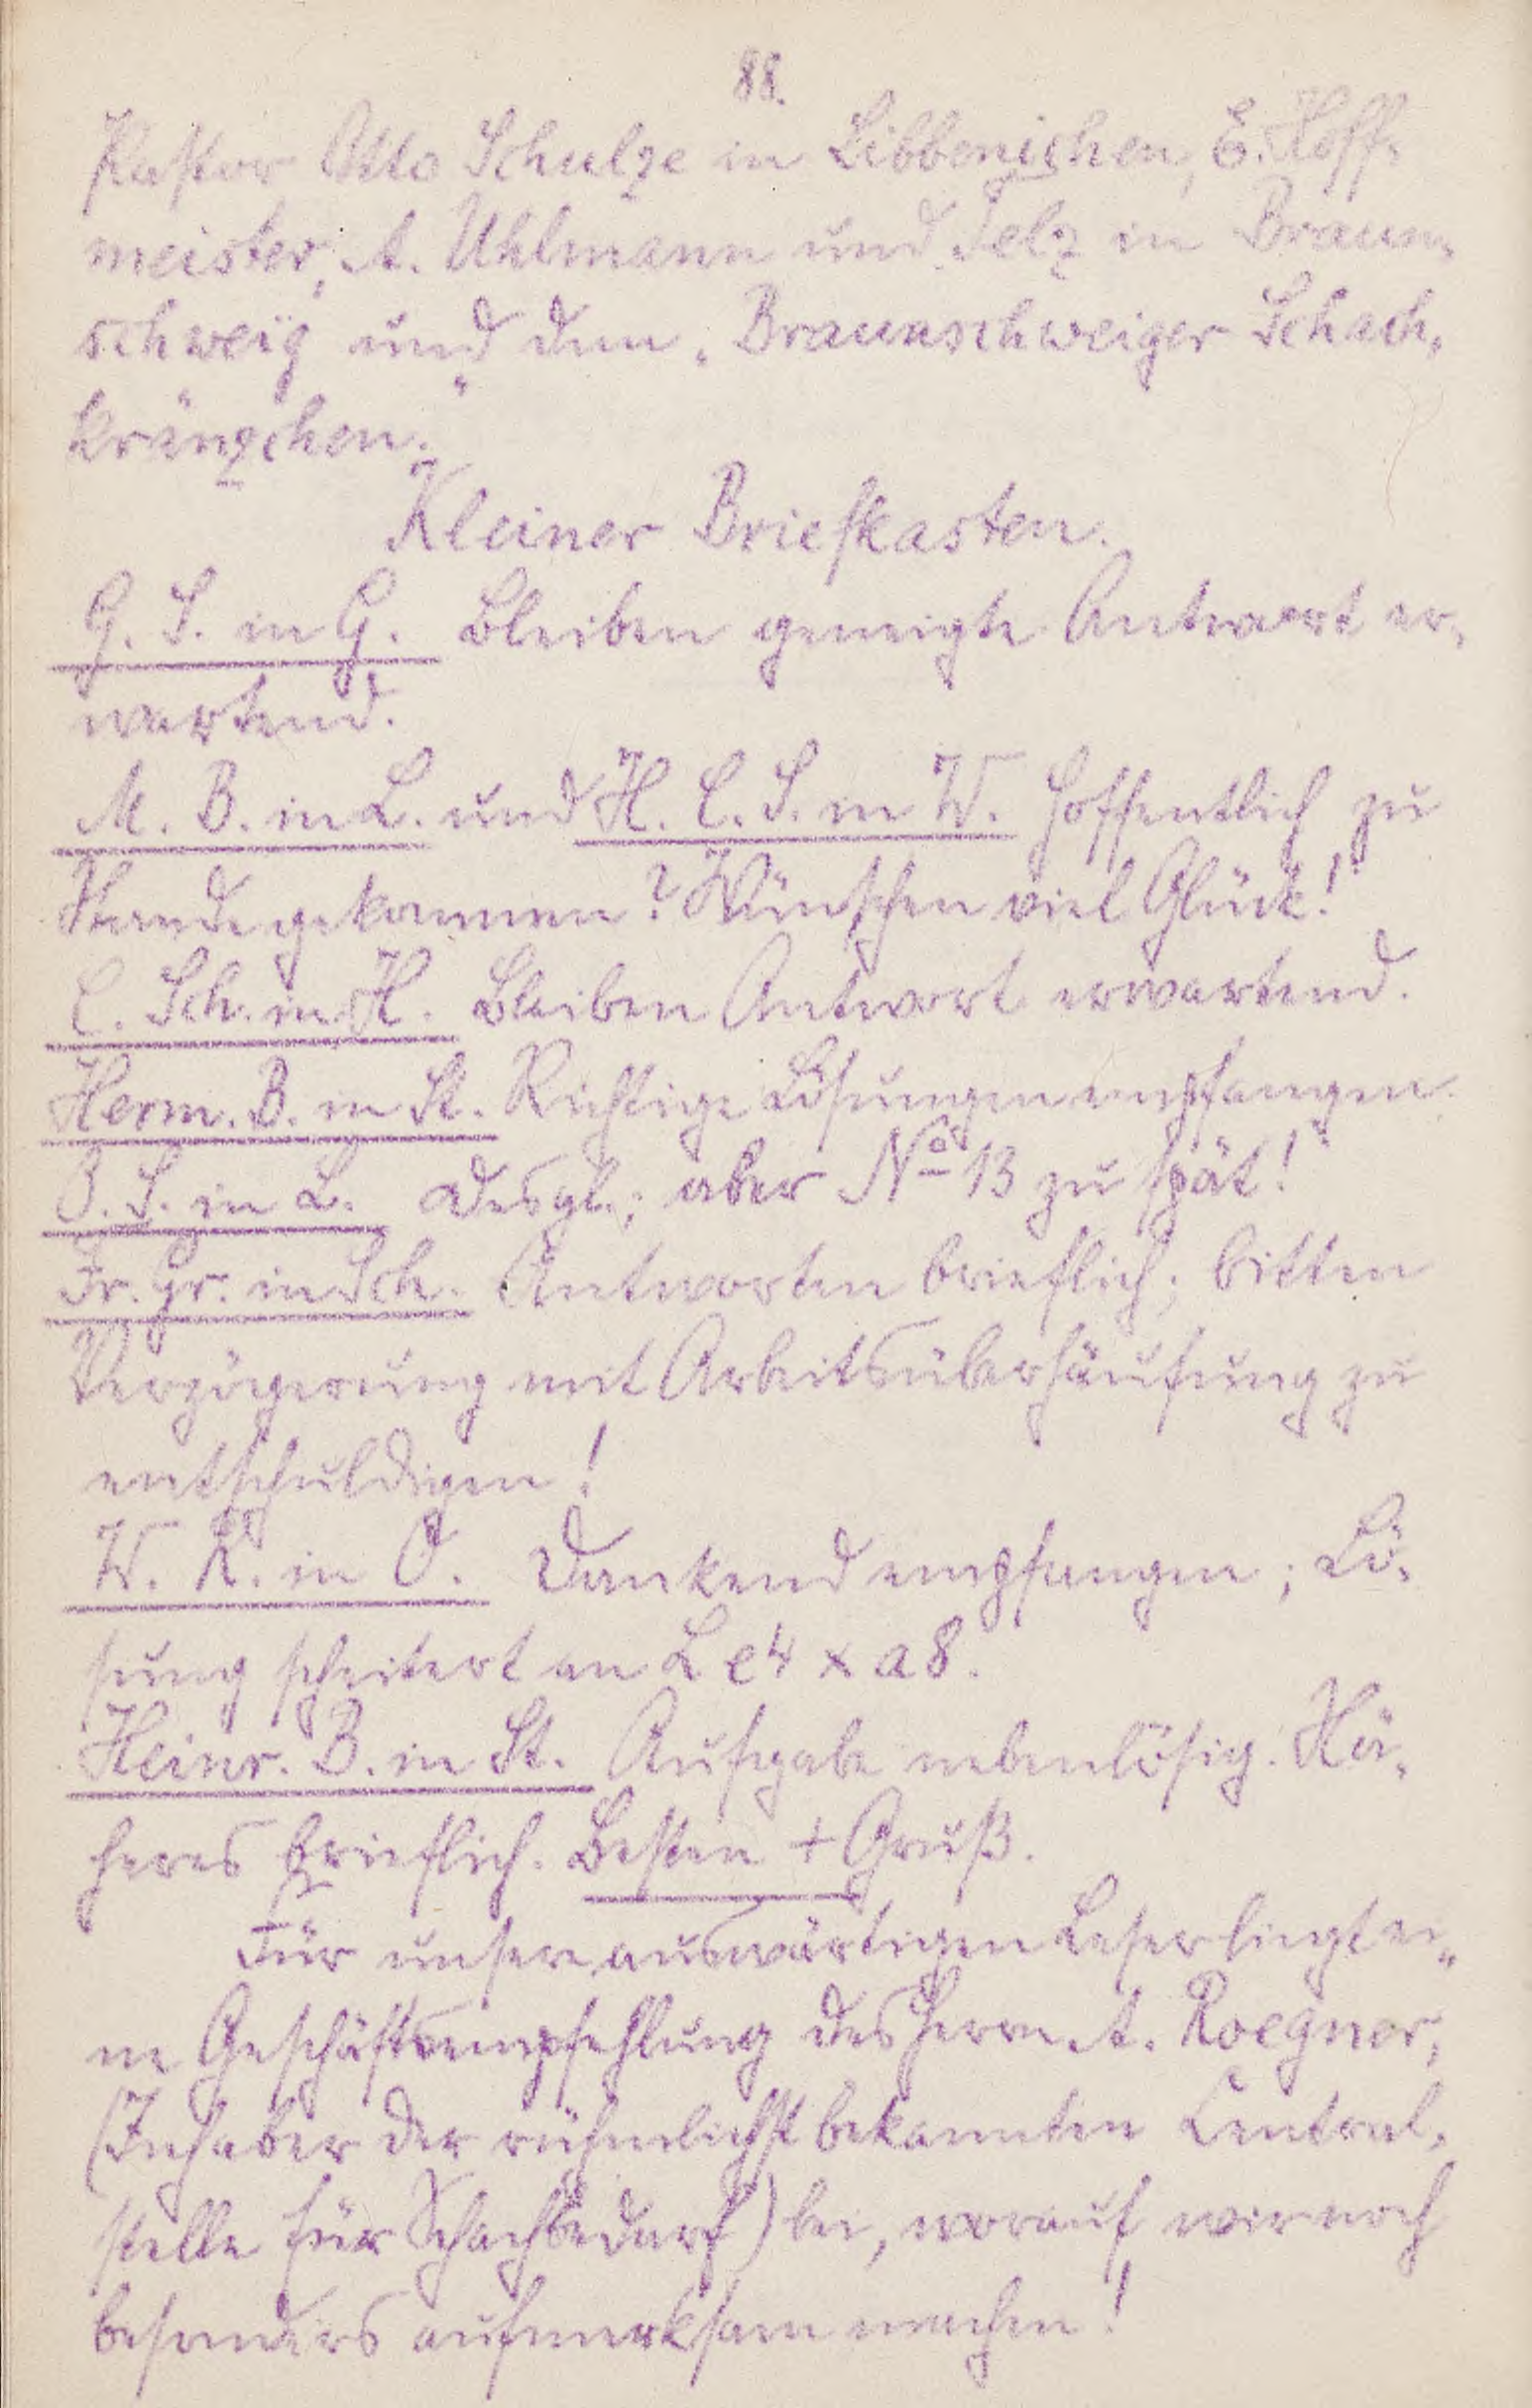 88.
Pastor Otto Schulze in Libbenichen, E. Hoff-
meister, A. Uhlmann und Pelz in Braun-
schweig und dem „Braunschweiger Schach-
kränzchen.“
Kleiner Briefkasten.
G. S. in G. Bleiben geneigte Antwort er-
wartend.
M. B. in L. und H. C. S. in W. Hoffentlich zu
Stande gekommen? Wünschen viel Glück!
C. Sch. in H. Bleiben Antwort erwartend.
Herm. B. in St. Richtige Lösungen empfangen.
O. S. in L. Desgl.; aber No 13 zu spät!
Fr. Gr. in Sch. Antworten brieflich; bitten
Verzögerung mit Arbeitsüberhäufung zu
entschuldigen!
W. K. in O. Dankend empfangen; Lö-
sung scheitert an L e4 x a8.
Heinr. B. in St. Aufgabe nebenlösig. Nä-
heres brieflich. Besten + Gruß.
Für unsere auswärtigen Leser liegt ei-
ne Geschäftsempfehlung des Herrn A. Roegner,
(Inhaber der rühmlichst bekannten Central-
stelle für Schachbedarf) bei, worauf wir noch
besonders aufmerksam machen!